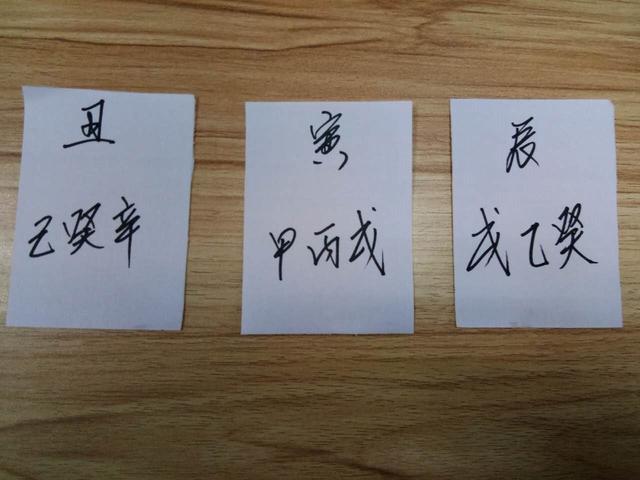 丑
己癸辛
寅
甲丙戊
辰
戊乙癸